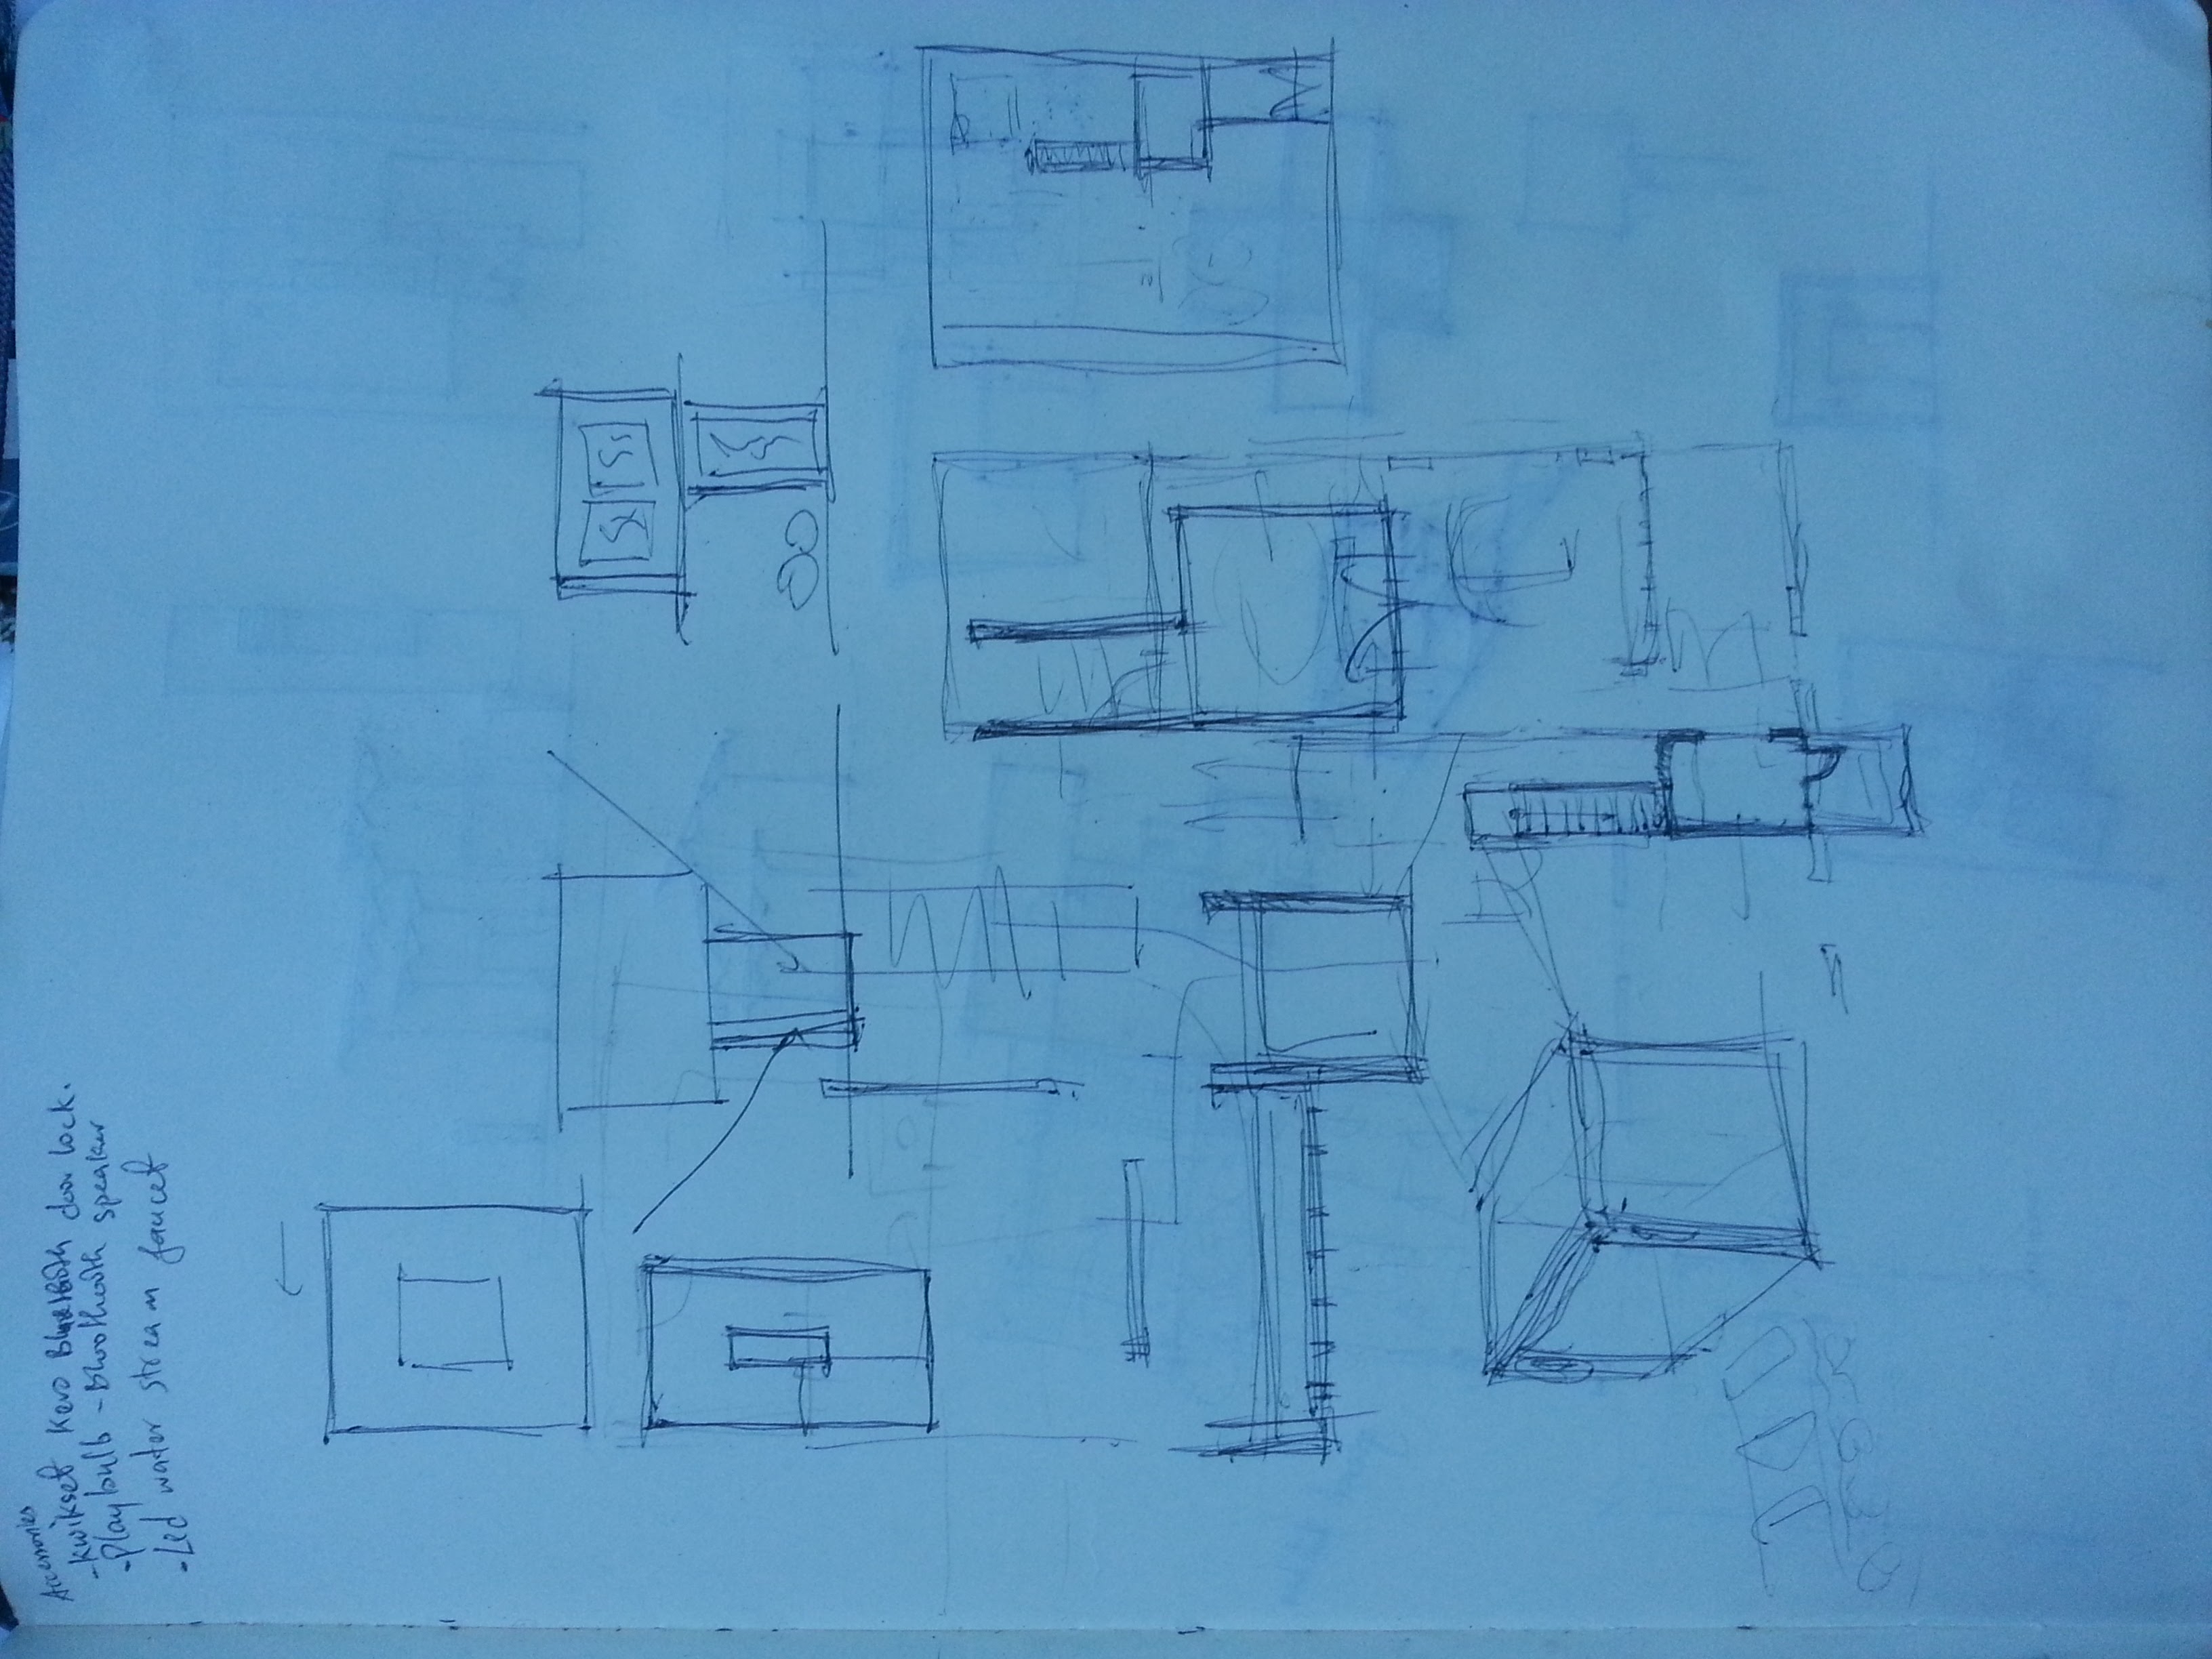 Accessories
- Kwikset Kevo Bluetooth door lock.
- Play bulb - Bluothooth speaker
- Led water stream faucet